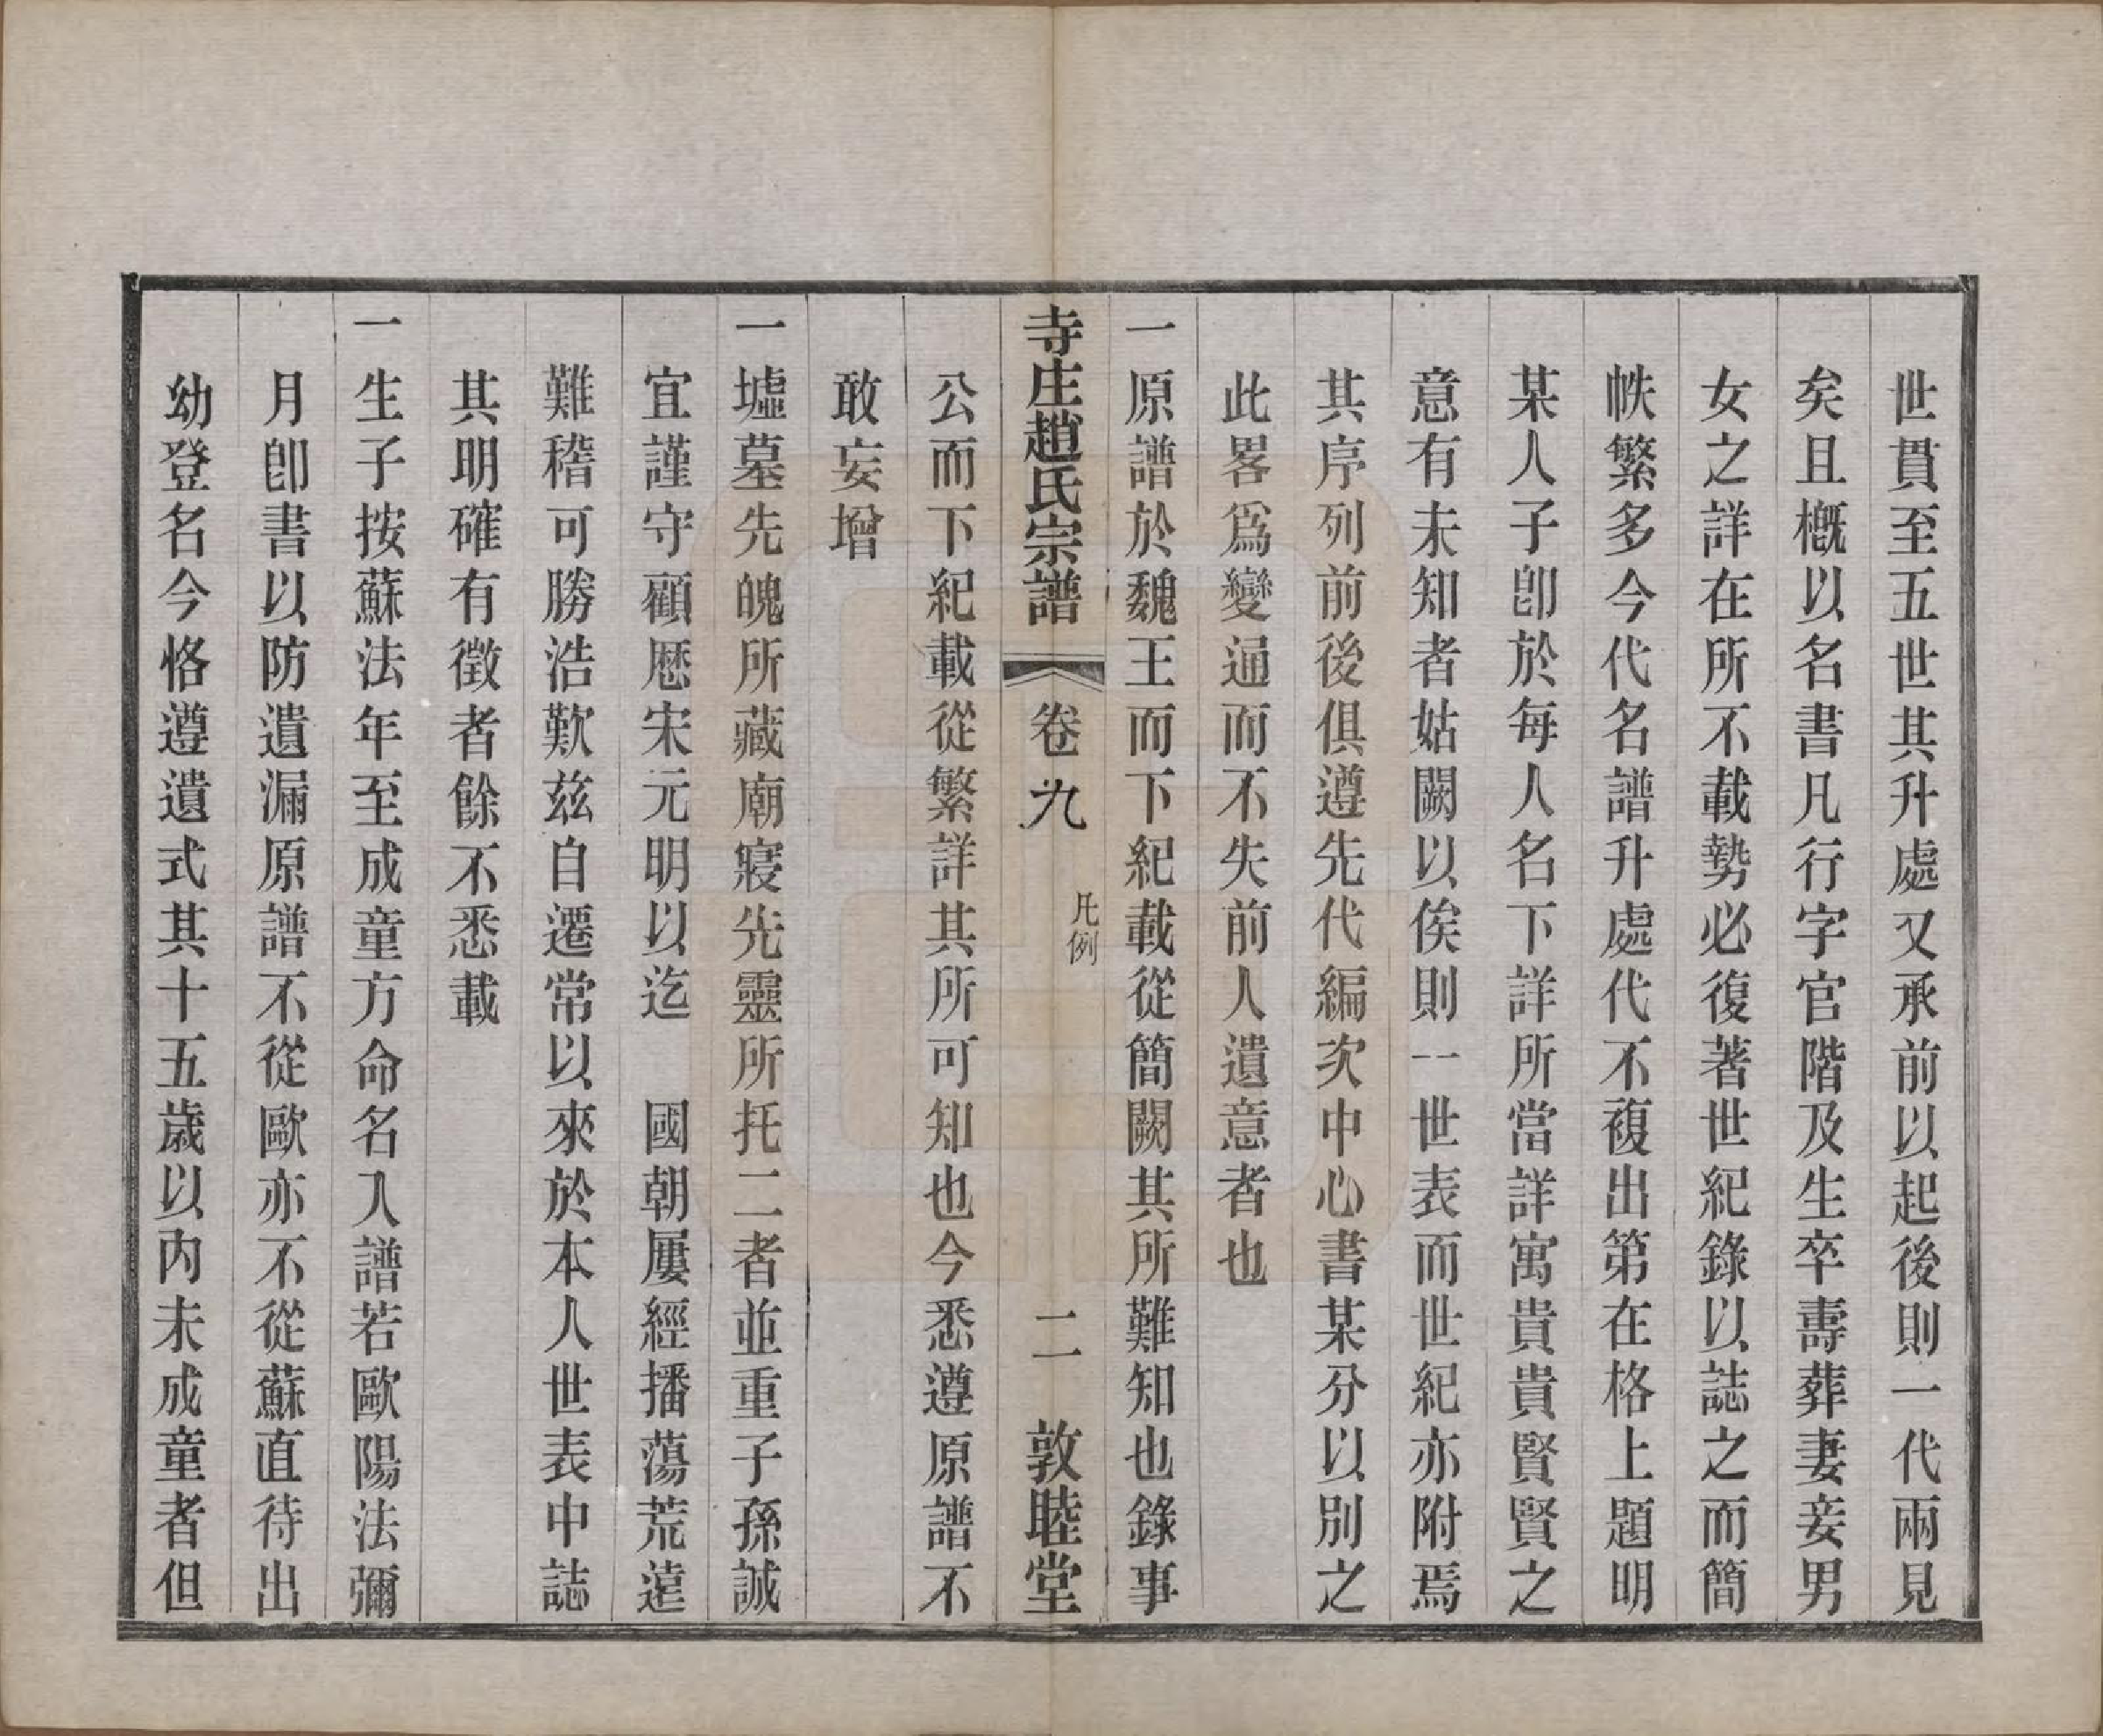 世貫至五世其升處又承前以起後則一代兩見
矣且概以名書凡行字官階及生卒壽葬妻妾男
女之詳在所不載勢必復著世紀錄以誌之而簡
帙繁多今代名譜升處代不複出第在格上題明
某人子卽於每人名下詳所當詳寓貴貴賢賢之
意有未知者姑闕以俟則一世表而世紀亦附焉
其序列前後俱遵先代編次中心書某分以別之
此畧爲變通而不失前人遺意者也
一原譜於魏王而下紀載從簡闕其所難知也錄事
寺庄趙氏宗譜 卷九 凡例 二 敦睦堂
公而下紀載從繁詳其所可知也今悉遵原譜不
敢妄增
一墟墓先魄所藏廟寢先靈所托二者並重子孫誠
宜謹守顧歷宋元明以迄 國朝屢經播蕩荒遠
難稽可勝浩歎玆自遷常以來於本人世表中誌
其明確有徵者餘不悉載
一生子按蘇法年至成童方命名入譜若歐陽法彌
月卽書以防遺漏原譜不從歐亦不從蘇直待出
幼登名今恪遵遺式其十五歲以內未成童者但